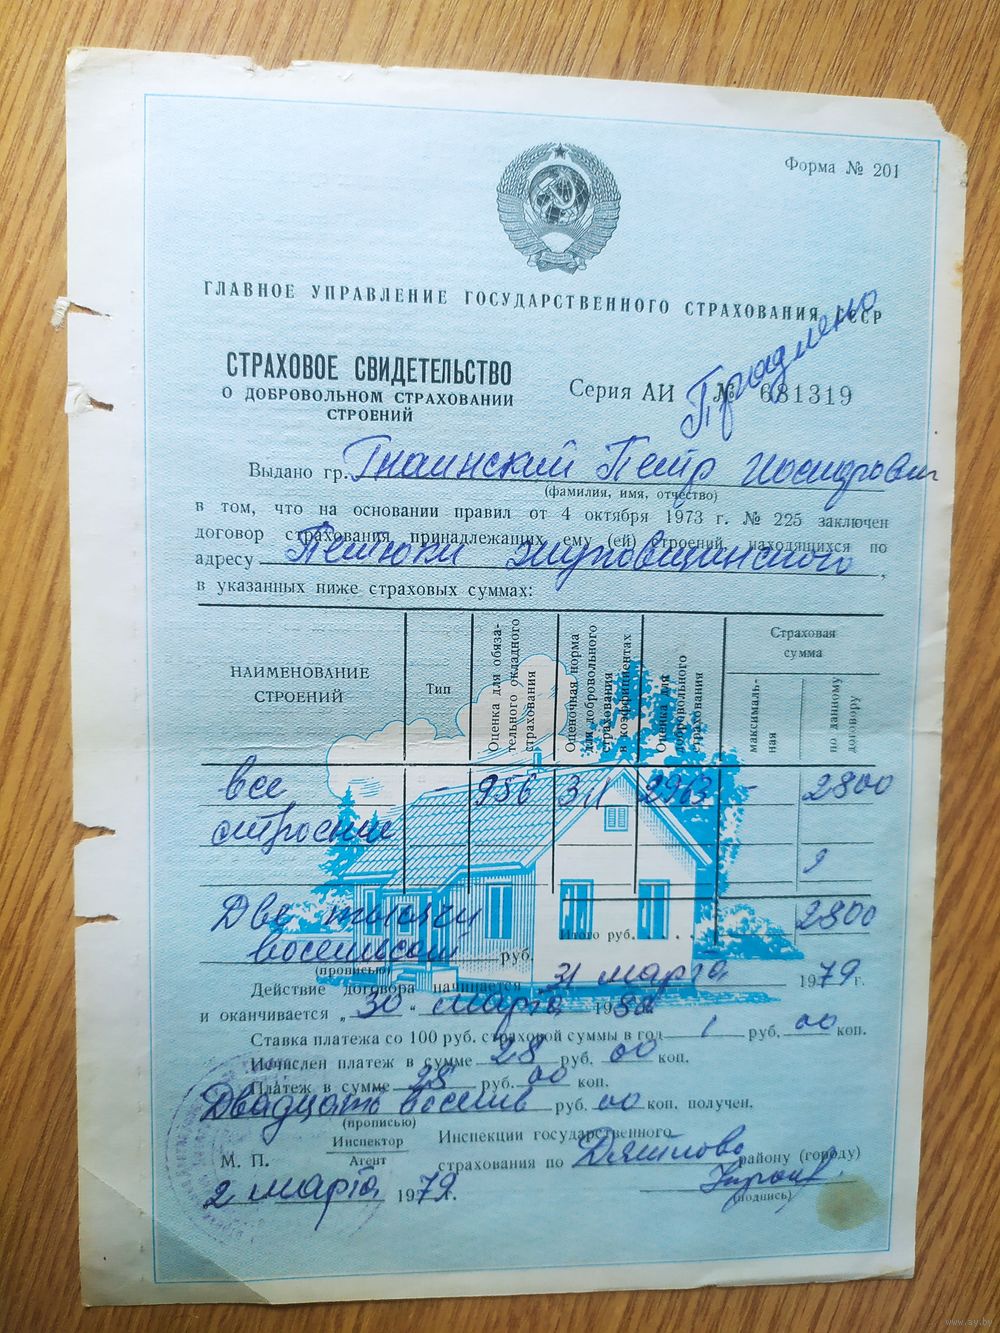 Форма № 201
ГЛАВНОЕ УПРАВЛЕНИЕ ГОСУДАРСТВЕННОГО СТРАХОВАНИЯ СССР
СТРАХОВОЕ СВИДЕТЕЛЬСТВО
О ДОБРОВОЛЬНОМ СТРАХОВАНИИ
СТРОЕНИЙ
Серия АИ № 681319
Продлено
Выдано гр. Петр
(фамилия, имя, отчество)
в том, что на основании правил от 4 октября 1973 г. № 225 заключен
договор страхования принадлежащих ему (ей) строений, находящихся по
адресу ,
в указанных ниже страховых суммах:
НАИМЕНОВАНИЕ
СТРОЕНИЙ
Тип
Оценка для обяза-
тельного окладного
страхования
Оценочная норма
для добровольного
страхования
в коэффициентах
Оценка для
добровольного
страхования
Страховая
сумма
максималь-
ная
по данному
договору
все - 956 3,1 2963 - 2800
строения
Две тысячи
Итого руб. . . . . 2800
восемьсот руб.
(прописью)
Действие договора начинается 31 марта 1979 г.
и оканчивается „30" марта 1980
Ставка платежа со 100 руб. страховой суммы в год 1 руб. 00 коп.
Исчислен платеж в сумме 28 руб. 00 коп.
Платеж в сумме 28 руб. 00 коп.
Двадцать восемь руб. 00 коп. получен.
(прописью)
Инспектор
Агент
Инспекции государственного
страхования по Дятлово району (городу)
М. П.
(подпись)
2 марта 1979 г.
www.ay.by